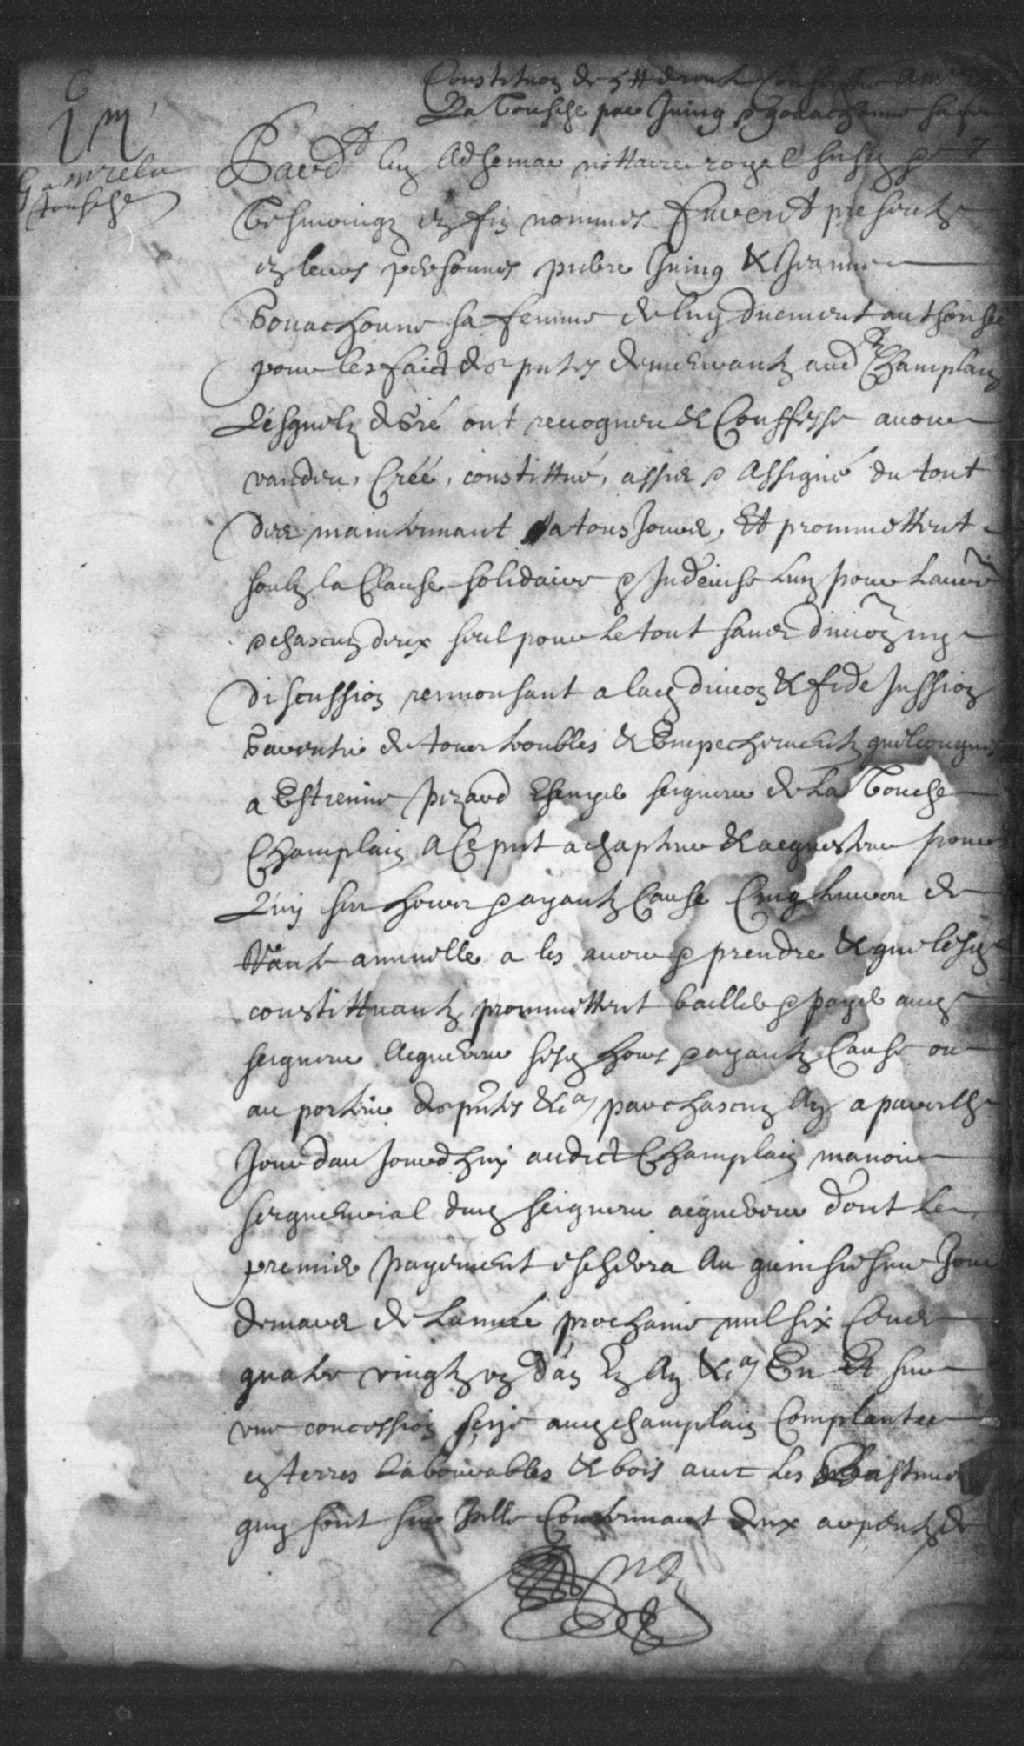 Constitu͠on de 5 ₶ de rente
La Tousche par Juing & gouachonne sa fe
6
1 m
Gamrelin
tousche
Pardt. Luy Adhemar nottaire royal susd. &
Tesmoingz en fin nommés furent presentz
en leurs personnes pierre Juing & Jeanne
Gouachonne sa femme de luy duement authorisée
pour les faict des pntes demeurantz aud. Champlain
Lesquelz de gré ont recogneu & Confessé avoir
vandu, Créé, constittué, assis & Assigné du tout
dez maintenant a tousjours, Et promettent
soubz la Clause solidaire & Indevise lun pour lautre
& chascun deux seul pour le tout sans divi͠on ny
discussion renonsant a lad. divi͠on & fide Jussion
Garentir de tous troubles & Empechementz quelconques
a Estienne pezard Escuyer seigneur de La Tousche
Champlain A Ce pnt achapteur & acquesteur pour
Luy ses hoirs & ayantz Cause Cinq livres de
Rante annuelle a les avoir & prendre & que lesd.
constittuantz promettent bailler & payer aud.
seigneur Acquereur sesd. hoirs & ayantz Cause ou
au porteur des pntes &a par chascun An a pareille
Jour dau Jourdhuy audict Champlain manoir
seigneurial dud. seigneur acquereur dont le
premier payement eschera Au quinsiesme Jour
de mars de lannée prochaine mil six Cents
quatre vingtz un dan En An &a En Et sur
une concession size aud. champlain Complantée
en terres Labourables & bois avec les Bastimens
quy sont sur Jcelle Contenant deux arpentz de